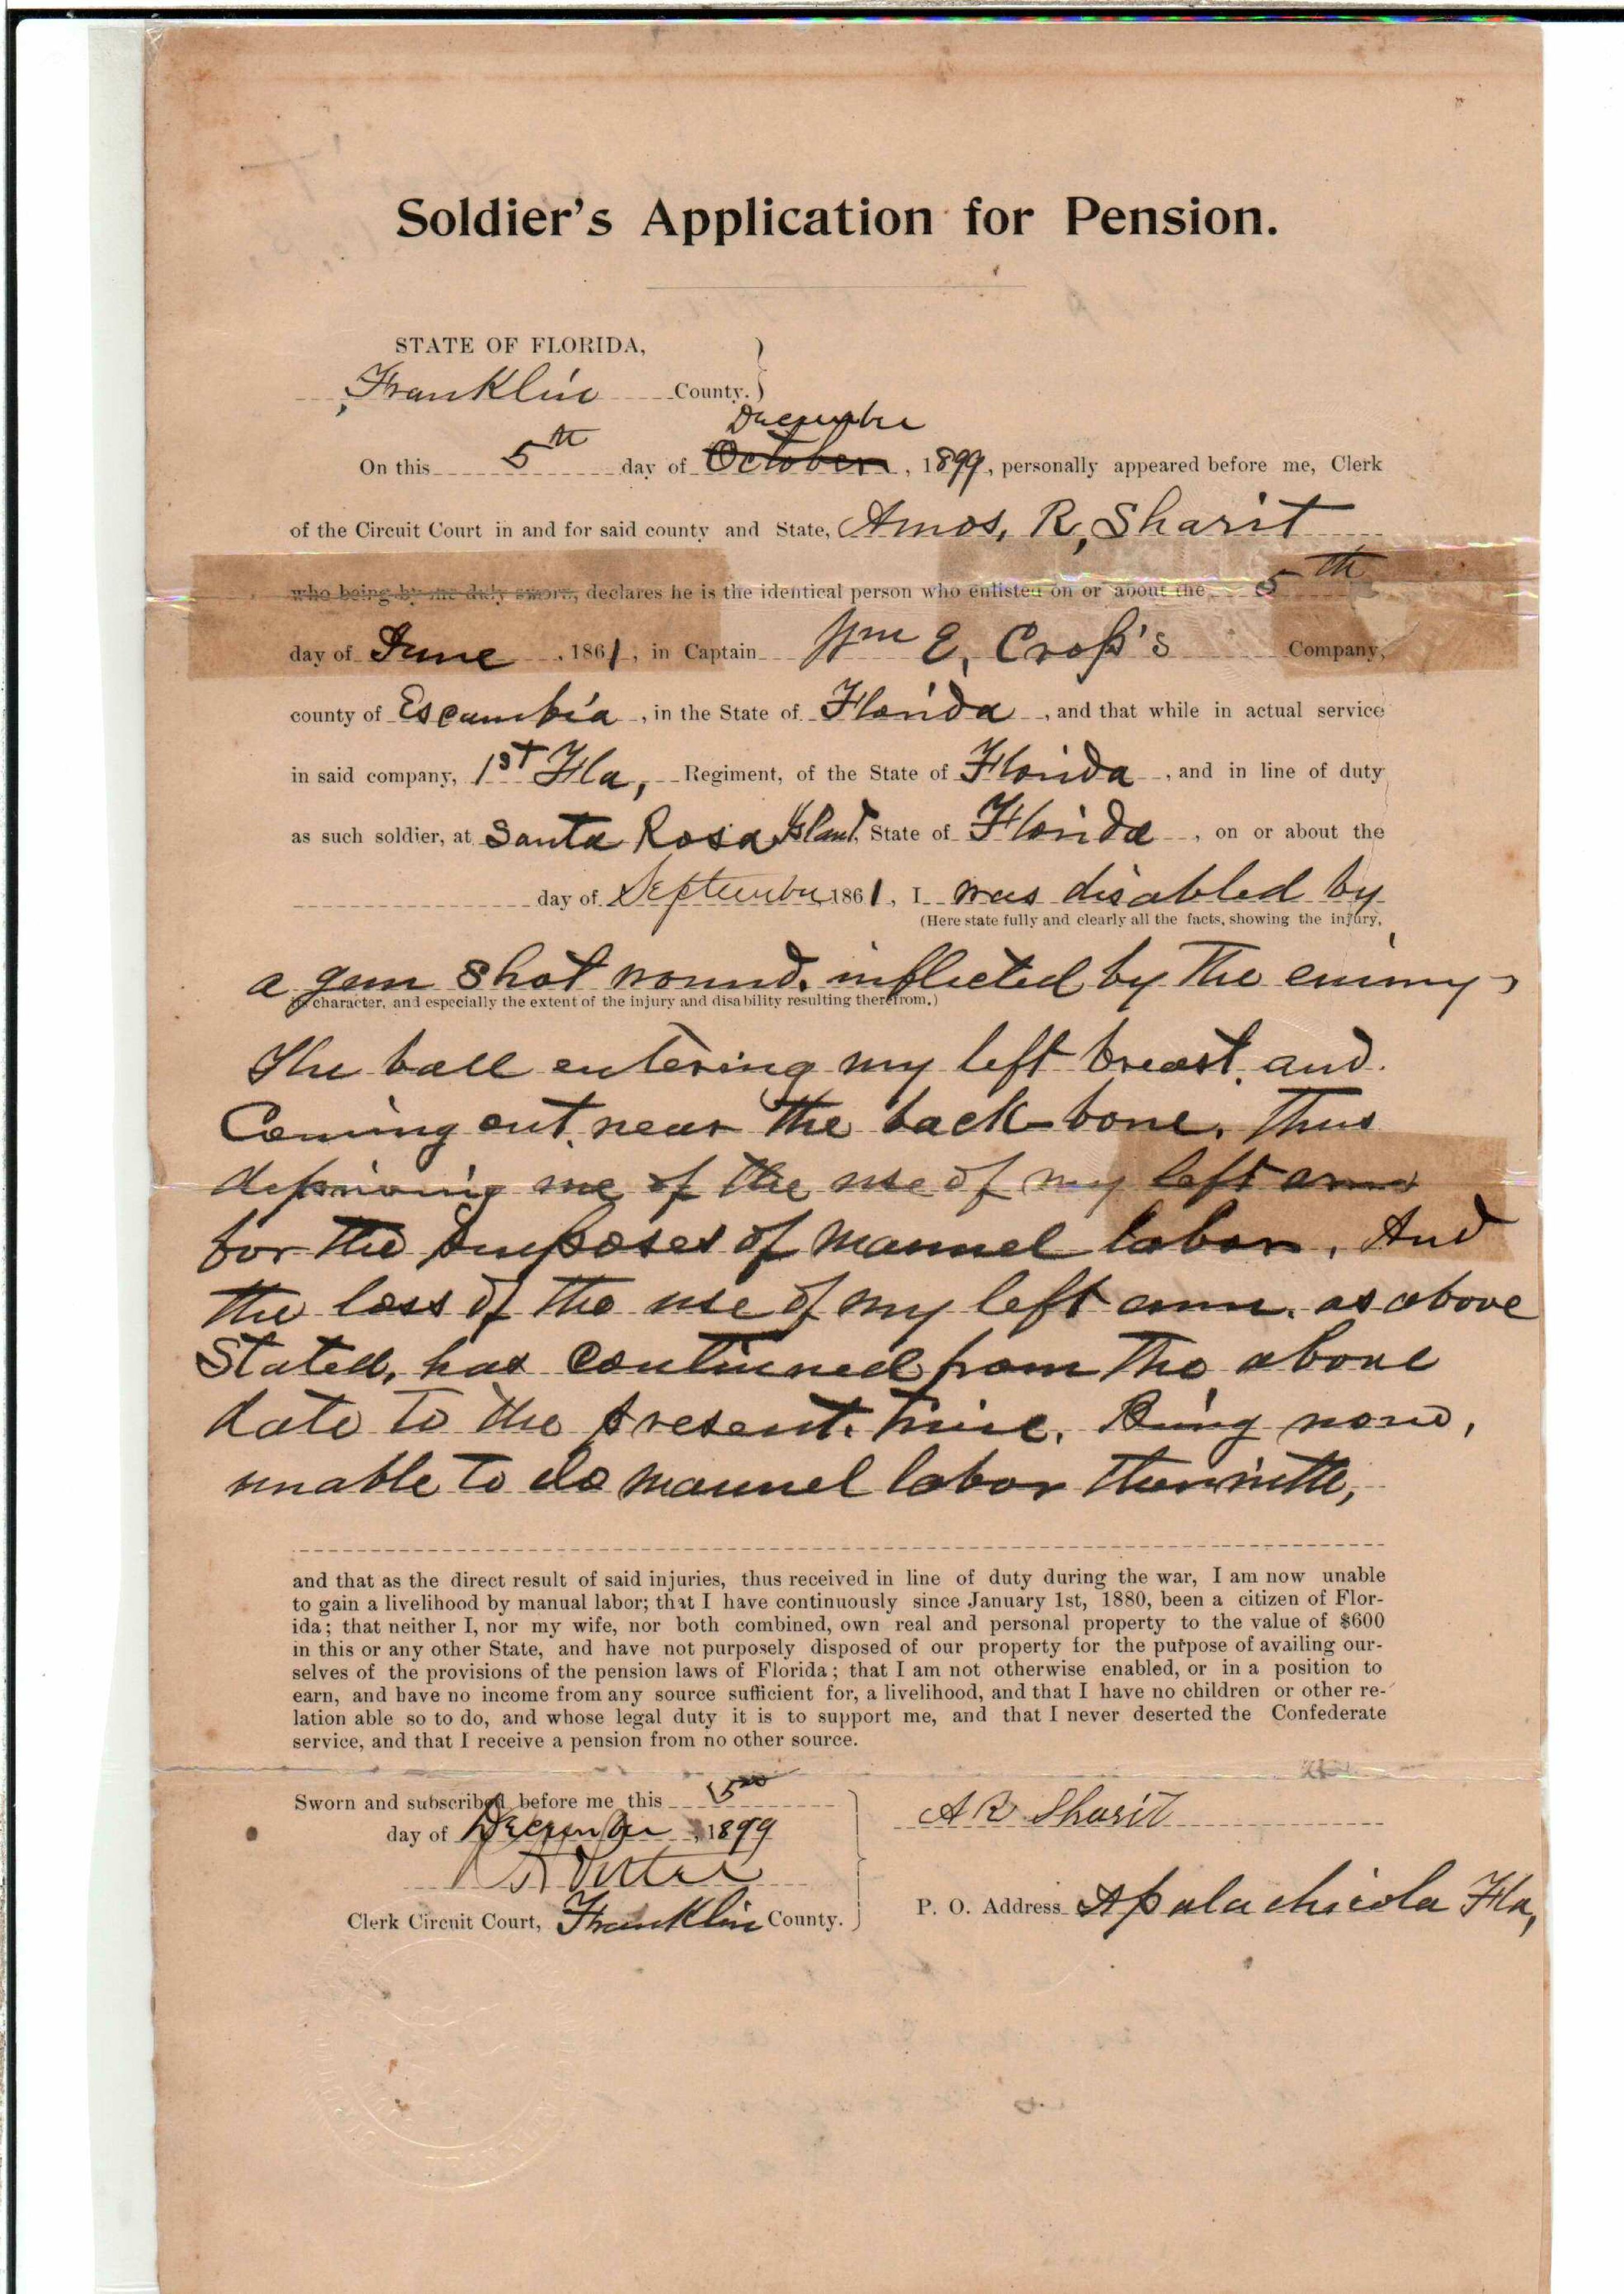 Soldier's Application for Pension.
STATE OF FLORIDA,
Franklin County.
December
On this 5th day of October, 1899, personally appeared before me, Clerk
of the Circuit Court in and for said county and State, Amos, R, Sharit
who being by me duly sworn, declares he is the identical person who enlisted on or about the 5th
day of June, 1861, in Captain Wm E, Cropp's Company,
county of Escambia, in the State of Florida, and that while in actual service
in said company, 1st Fla, Regiment, of the State of Florida, and in line of duty
as such soldier, at Santa Rosa Island, State of Florida, on or about the
day of September, 1861, I was disabled by
(Here state fully and clearly all the facts, showing the injury,
a gun shot wound. inflicted by the enimy,
its character, and especially the extent of the injury and disability resulting therefrom.)
The ball entering my left breast. and
Coming out, near the back-bone. Thus
depriving me of the use of my left arm
for the purposes of mannel labor. And
the loss of the use of my left arm. as above
Stated, has continued from the above
date to the present. time. Being now,
unable to do mannel labor therewith,
and that as the direct result of said injuries, thus received in line of duty during the war, I am now unable
to gain a livelihood by manual labor; that I have continuously since January 1st, 1880, been a citizen of Flor-
ida; that neither I, nor my wife, nor both combined, own real and personal property to the value of $600
in this or any other State, and have not purposely disposed of our property for the purpose of availing our-
selves of the provisions of the pension laws of Florida; that I am not otherwise enabled, or in a position to
earn, and have no income from any source sufficient for, a livelihood, and that I have no children or other re-
lation able so to do, and whose legal duty it is to support me, and that I never deserted the Confederate
service, and that I receive a pension from no other source.
Sworn and subscribed before me this 5th
day of December, 1899
A R Sharit
Clerk Circuit Court, Franklin County.
P. O. Address Apalachicola Fla,